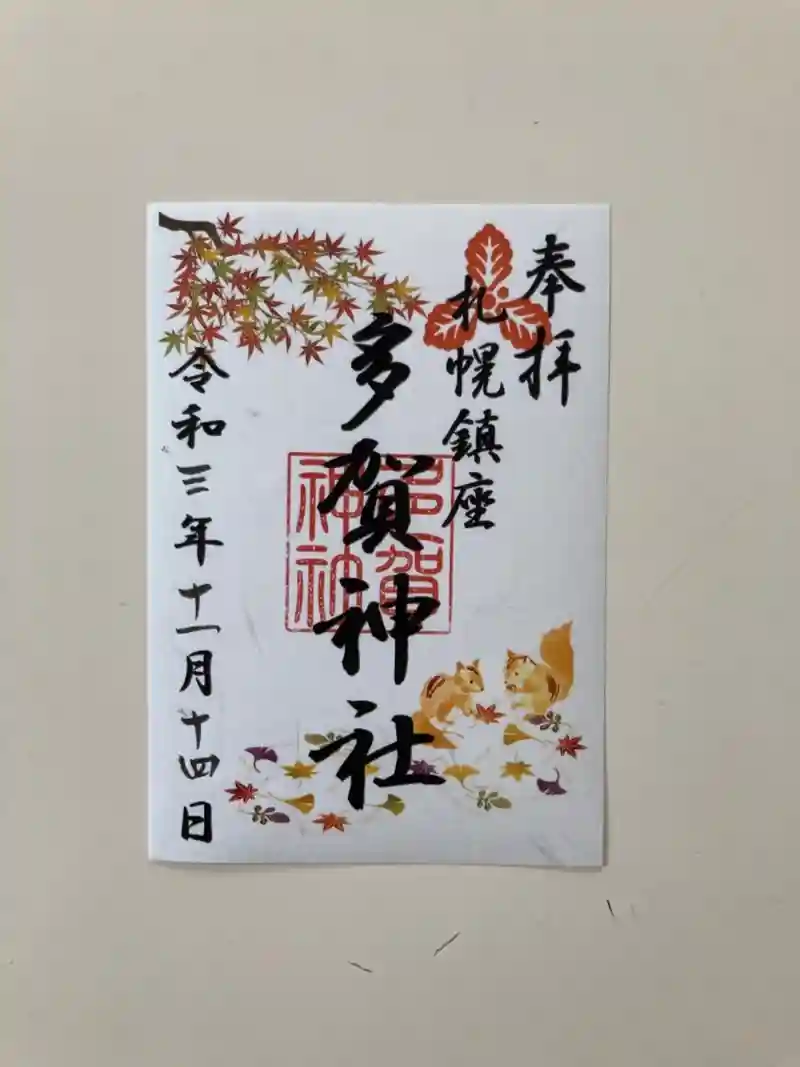 奉拝
札幌鎮座
多賀神社
多賀
神社
令和三年十一月十四日